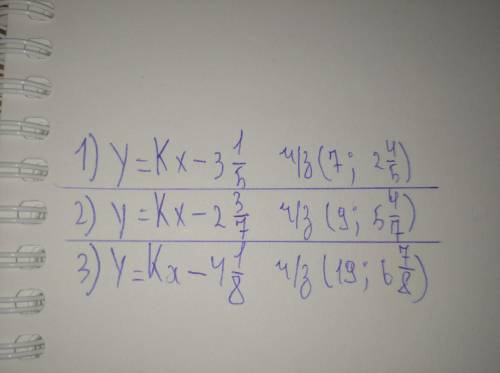 1) y=Kx-3 1/5 ч/з (7; 2 4/5)
2) y=Kx-2 3/7 ч/з (9; 5 4/7)
3) y=Kx-4 1/8 ч/з (19; 6 7/8)